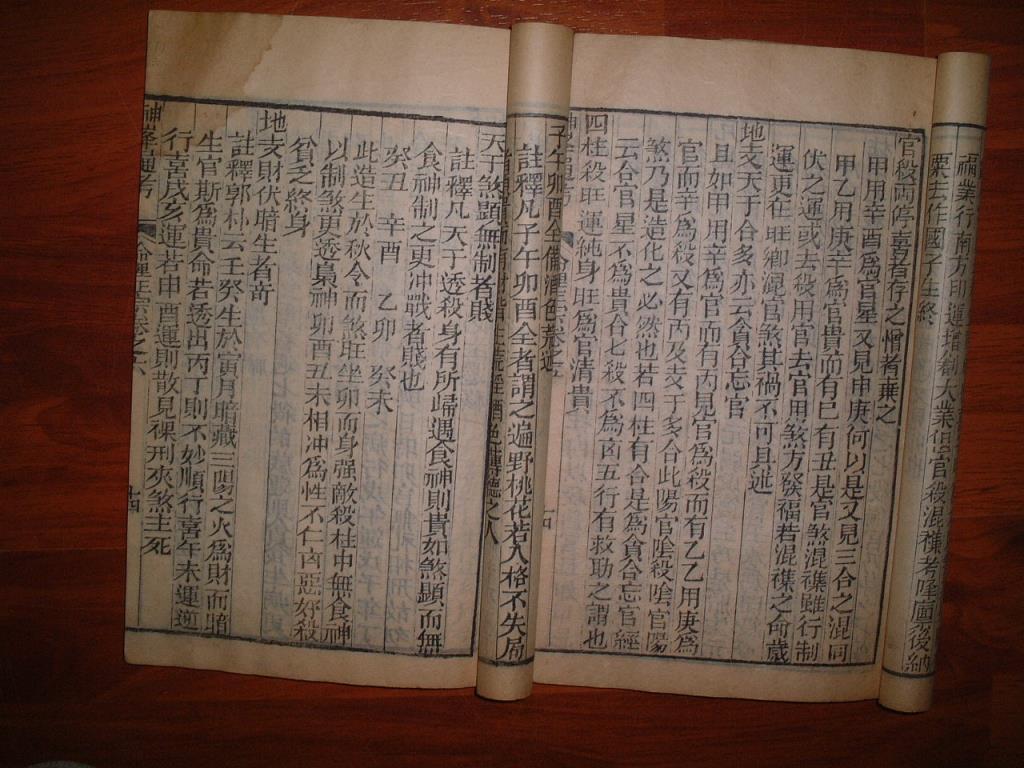 福業行南方印運增勸大業但官殺混襍考隆圖後納
粟去作國子生終
官殺両停喜者存之憎者棄之
甲用辛酉為官星又見申庚何以是又見三合之混同
甲乙用庚辛為官貴而有巳有丑是官煞混襍雖行制
伏之運或去殺用官去官用煞方發福若混襍之命歲
運更在旺鄉混官煞其禍不可具述
地支天干合多亦云貪合忘官
且如甲用辛爲官而有丙見官爲殺而有乙乙用庚爲
官而辛爲殺又有丙及支干多合此陽官陰殺陰官陽
煞乃是造化之必然也若四柱有合是爲貪合忘官經
云合官星不爲貴合七殺不為凶五行有救助之謂也
四柱殺旺運純身旺爲官清貴
子午卯酉全備酒色荒迷
註釋凡子午卯酉全者謂之遍野桃花若入格不失局
酒色薄德之人
天干煞顯無制者賤
註釋凡天干透殺身有所歸遇食神則貴如煞顯而無
食神制之更冲戰者賤也
癸丑 辛酉 乙卯 癸未
此造生於秋令而煞旺坐卯而身强敵殺柱中無食神
以制煞更透梟神卯酉丑未相冲爲性不仁凶惡好殺
貧乏終身
地支財伏暗生者奇
註釋郭朴云壬癸生於寅月暗藏三四之火爲財而暗
生官斯爲貴命若透出丙丁則不妙順行喜午未運逆
行喜戌亥運若申酉運則散見祼刑夾煞主死
神峯通考 命理正宗卷之六 十四